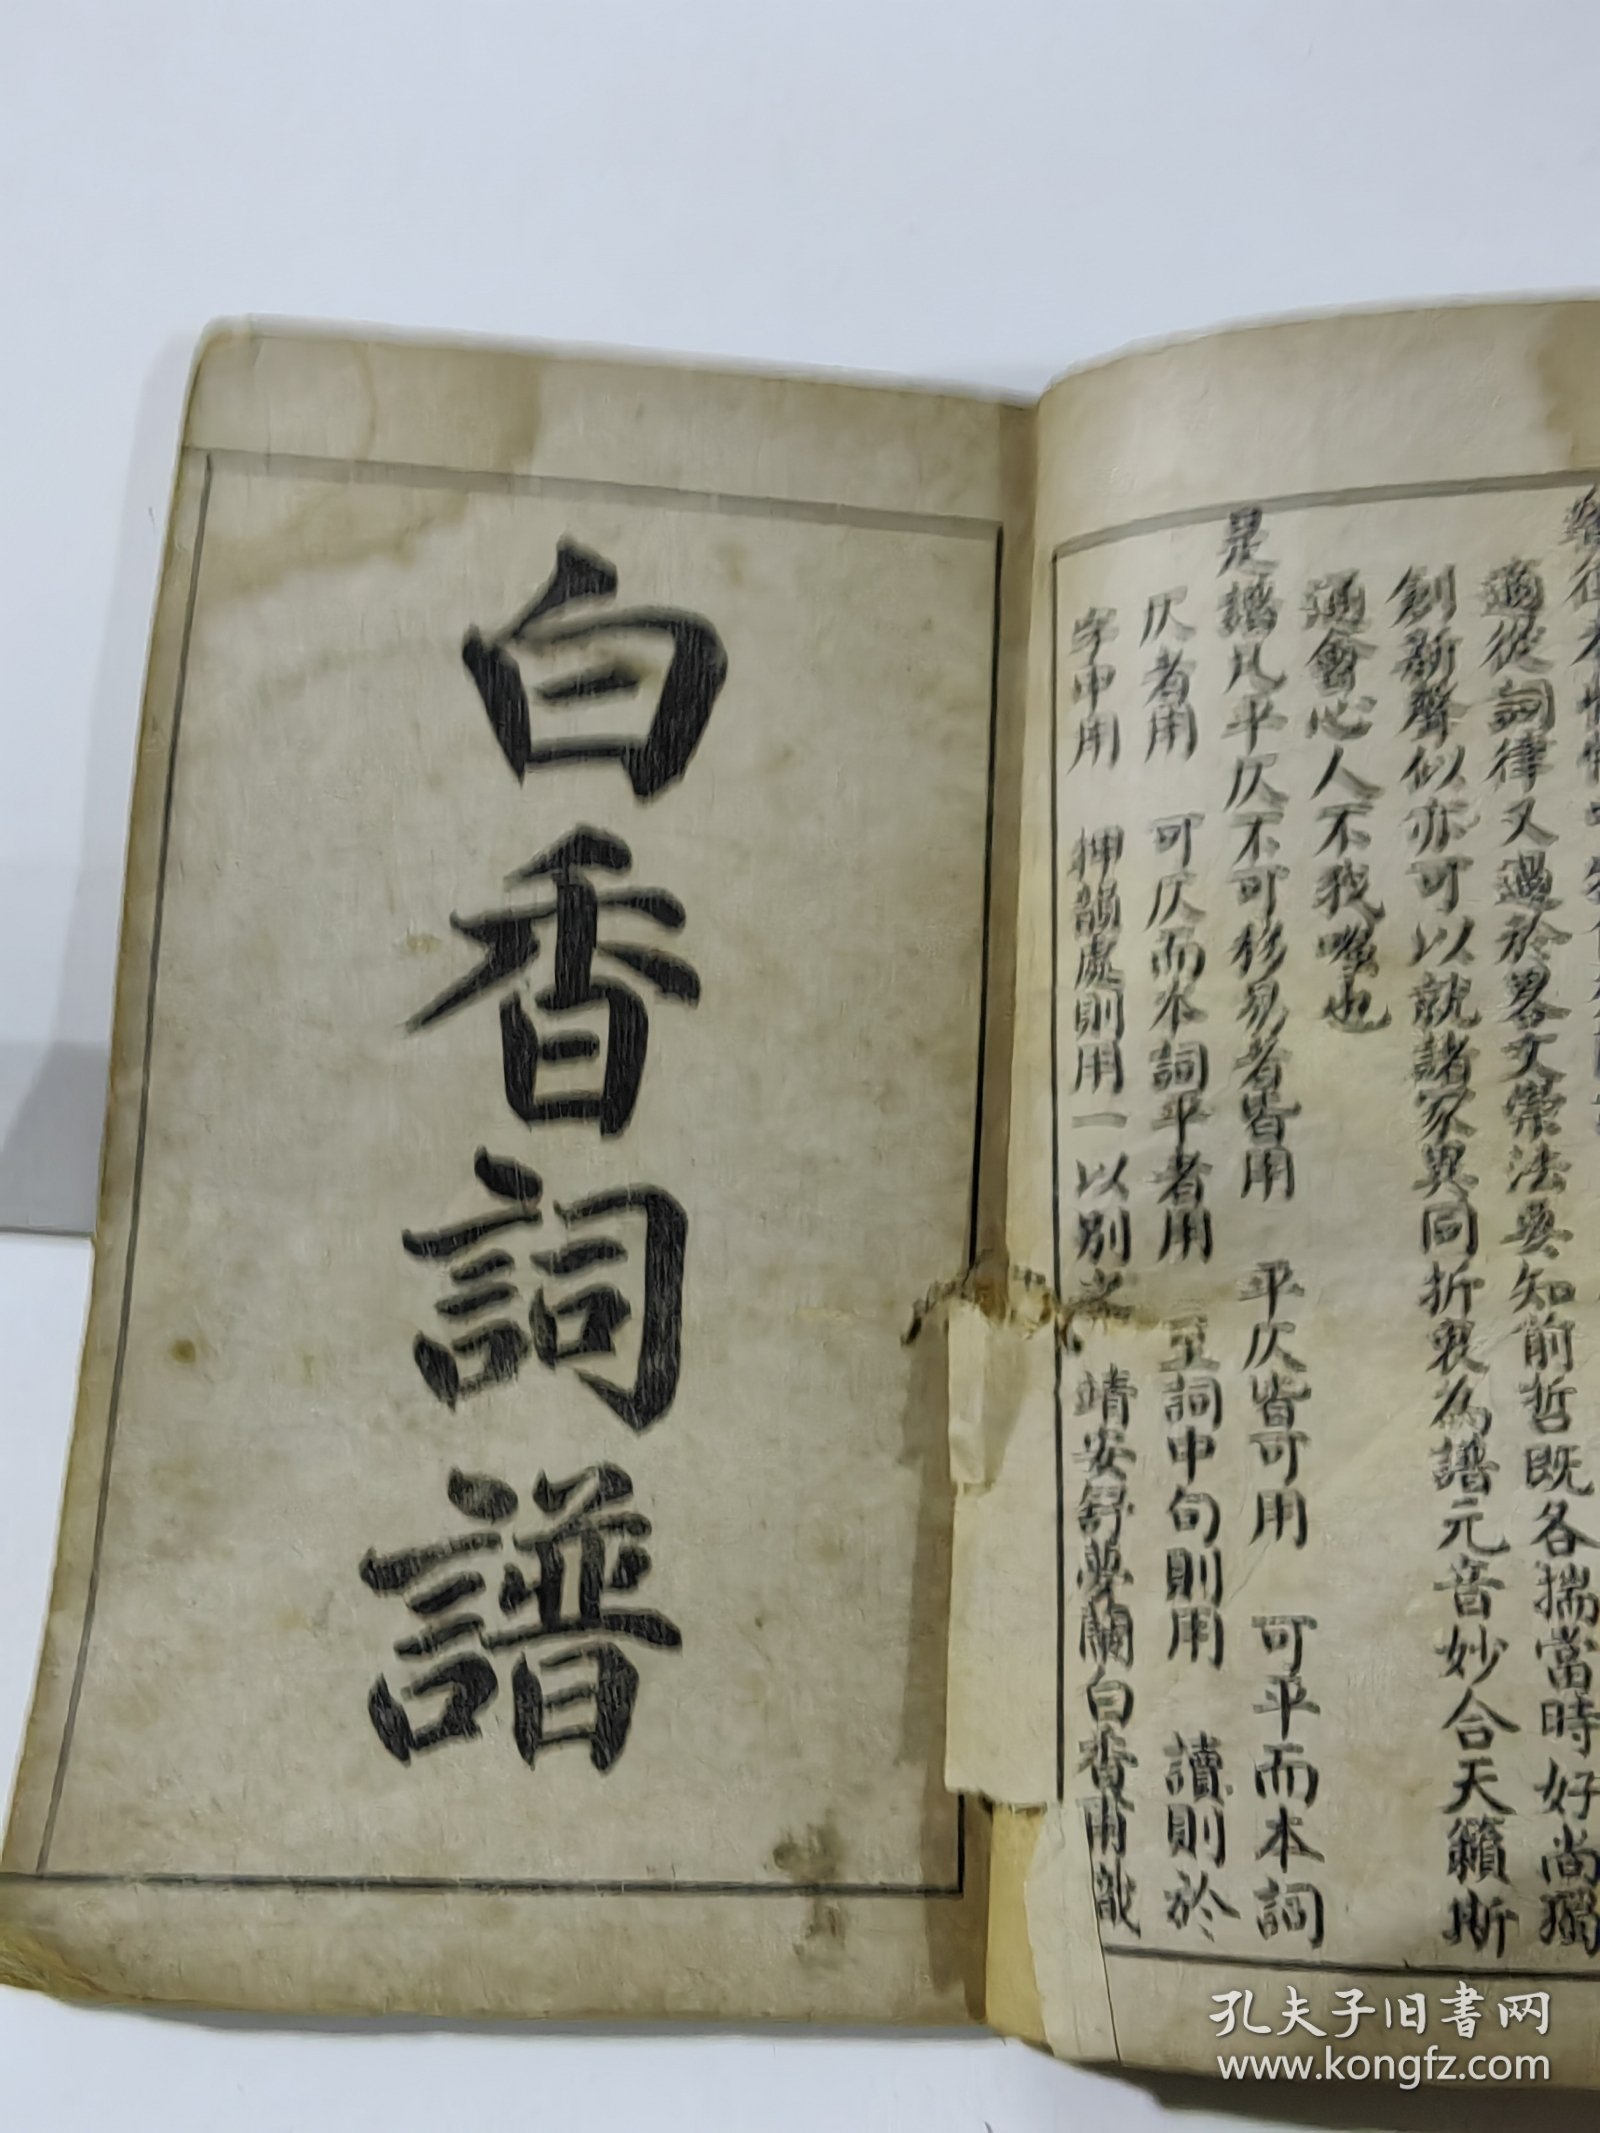 適從詞律又過於畧文縈法要知前哲既各揣當時好尚獨
創新聲似亦可以就諸家異同折衷為譜元音妙合天籟斯
通會心人不我嗤也
是譜凡平仄不可移易者皆用 平仄皆可用 可平而本詞
仄者用 可仄而本詞平者用 至詞中句則用 讀則於
字中用 押韻處則用一以別之 靖安舒夢蘭白香甫識
白香詞譜
孔夫子旧书网
www.kongfz.com